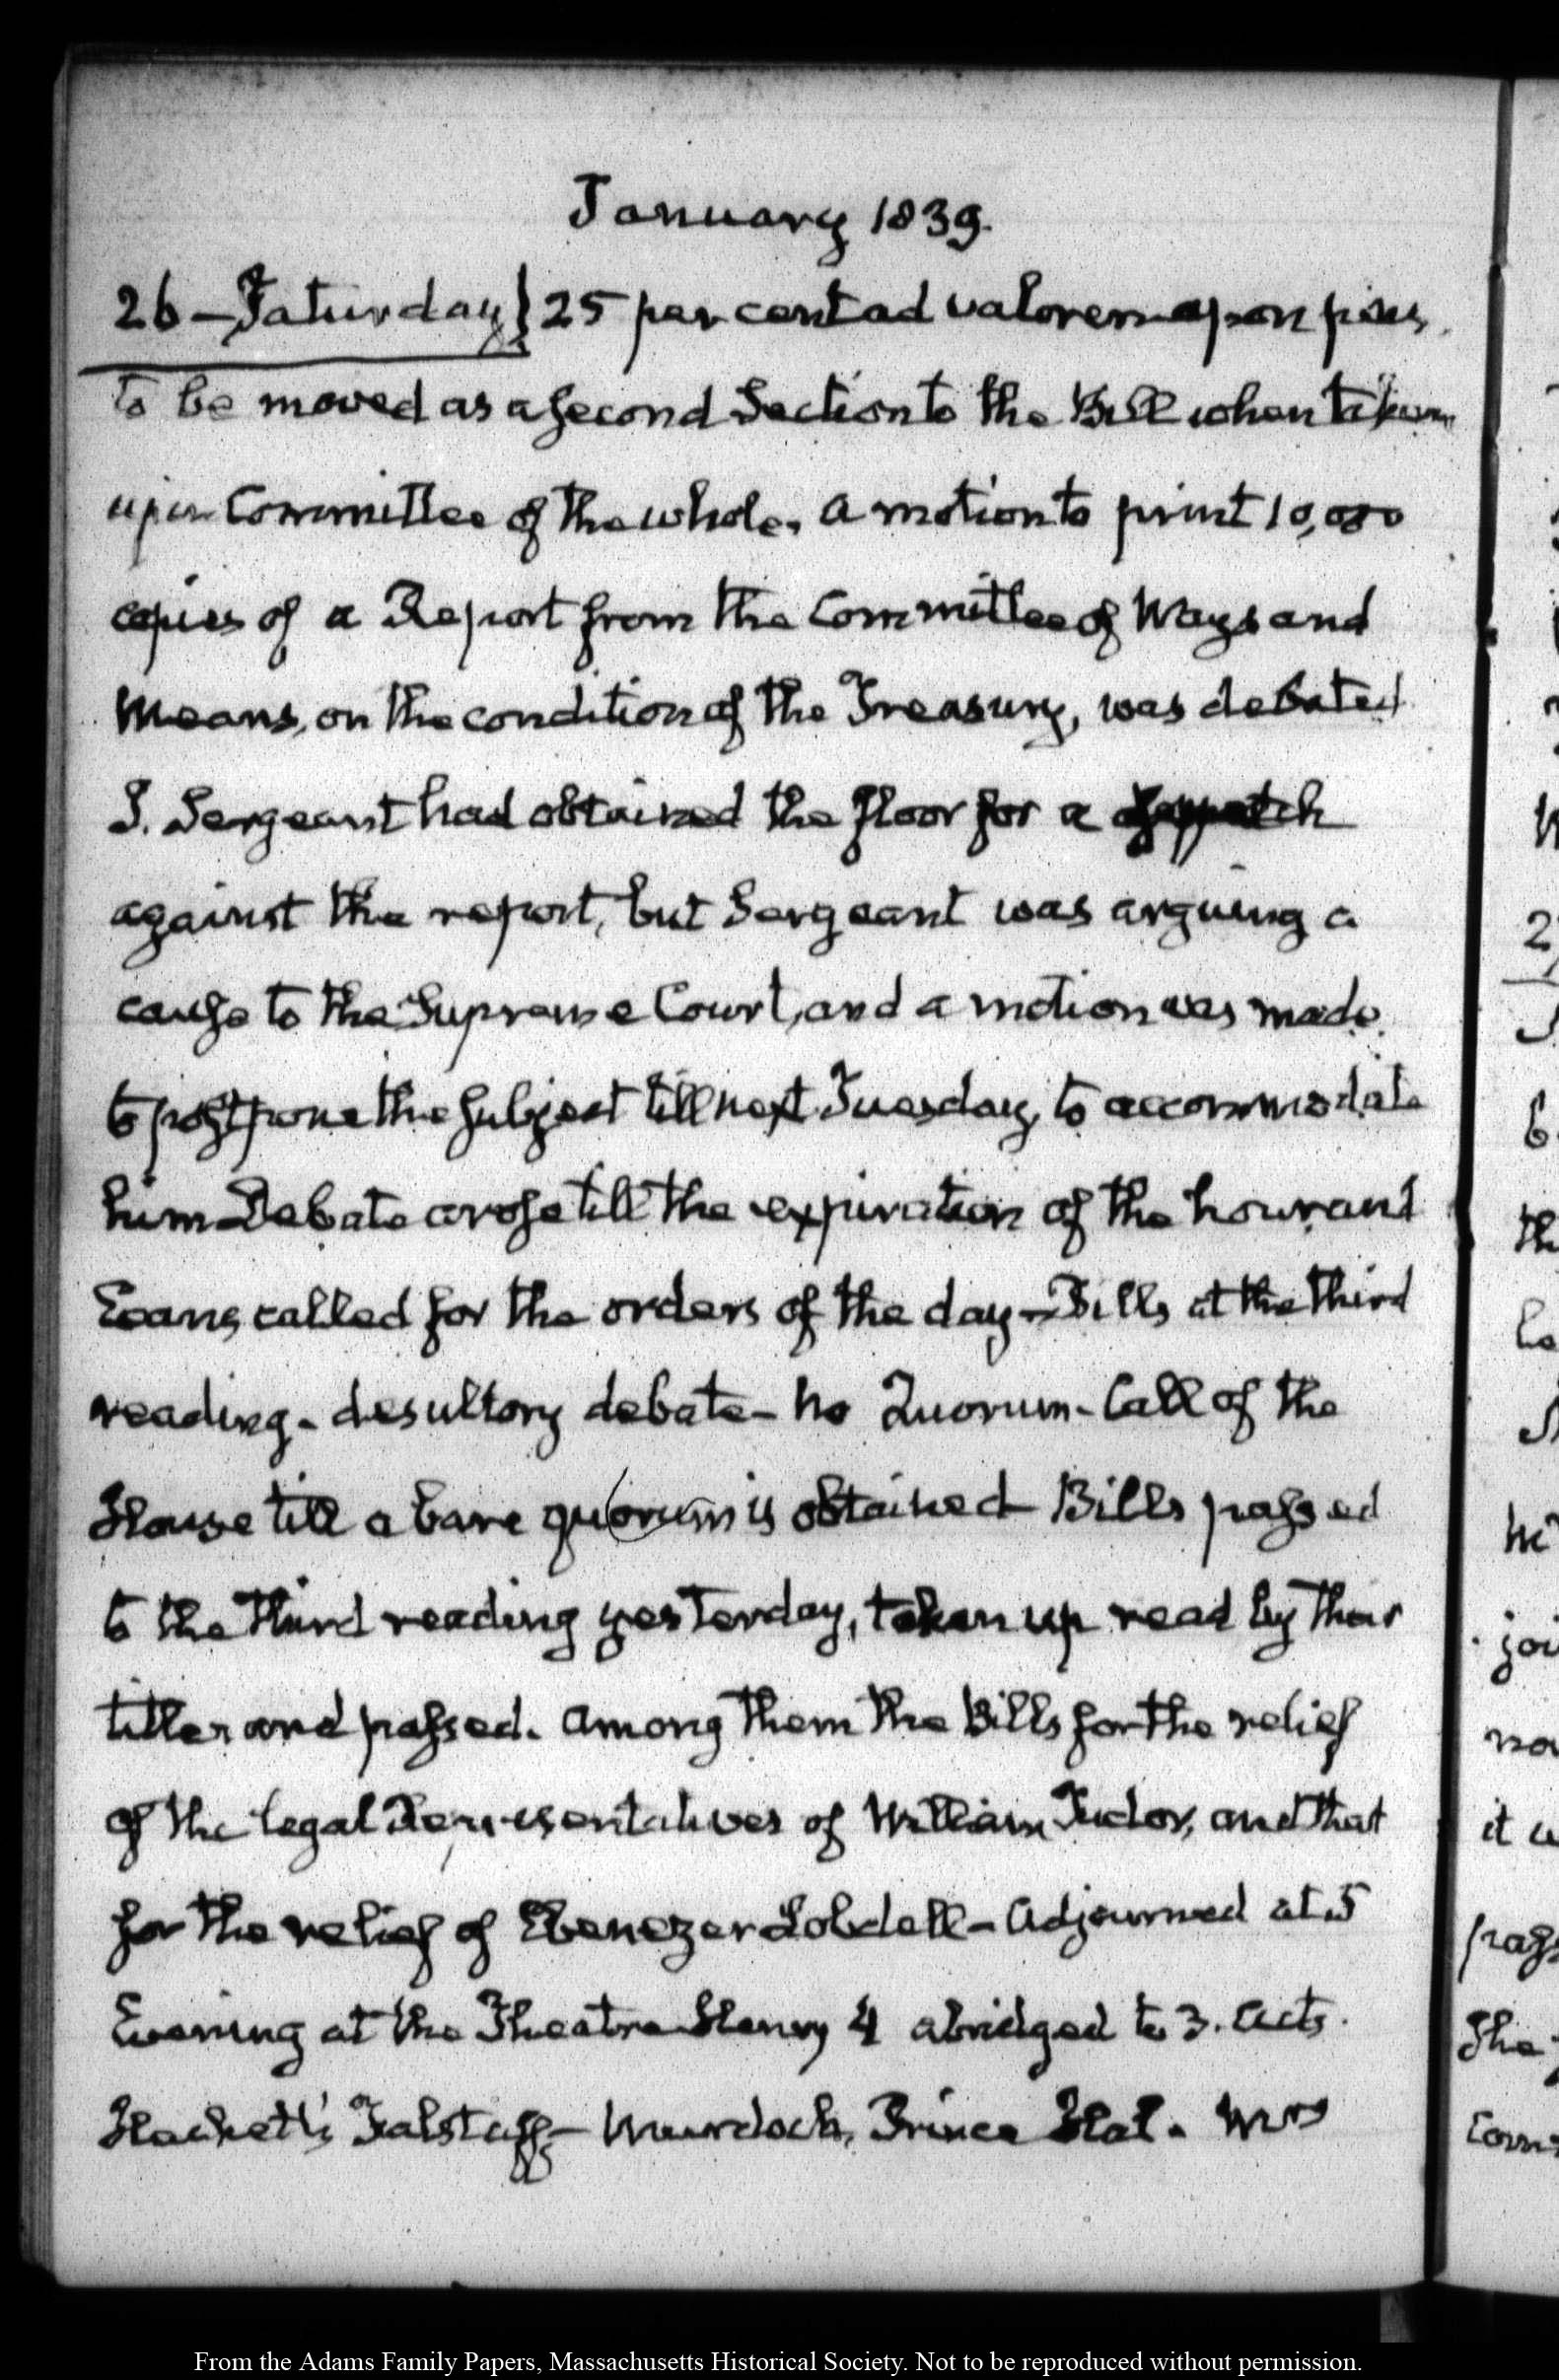 January 1839.
26 – Saturday} 25 per cent ad valorem upon pins,
to be moved as a second Section to the Bill when taken
up in Committee of the whole. A motion to print 10,000
copies of a Report from the Committee of Ways and
Means, on the condition of the Treasury, was debated
J. Sergeant had obtained the floor for a
against the report, but Sergeant was arguing a
cause to the Supreme Court, and a motion was made
to postpone the subject till next Tuesday, to accommodate
him – Debate arose till the expiration of the hour and
Evans called for the orders of the day – Bills at the third
reading – desultory debate – No Quorum – Call of the
House till a bare quorum is obtained Bills passed
to the third reading yesterday, taken up read by their
titles and passed. Among them the Bills for the relief
of the legal Representatives of William Tudor, and that
for the relief of Ebenezer Lobdell – Adjourned at 5
Evening at the Theatre Henry 4 abridged to 3. Acts.
Hackett's Falstaff – Murdoch, Prince Hal. Mrs
From the Adams Family Papers, Massachusetts Historical Society. Not to be reproduced without permission.